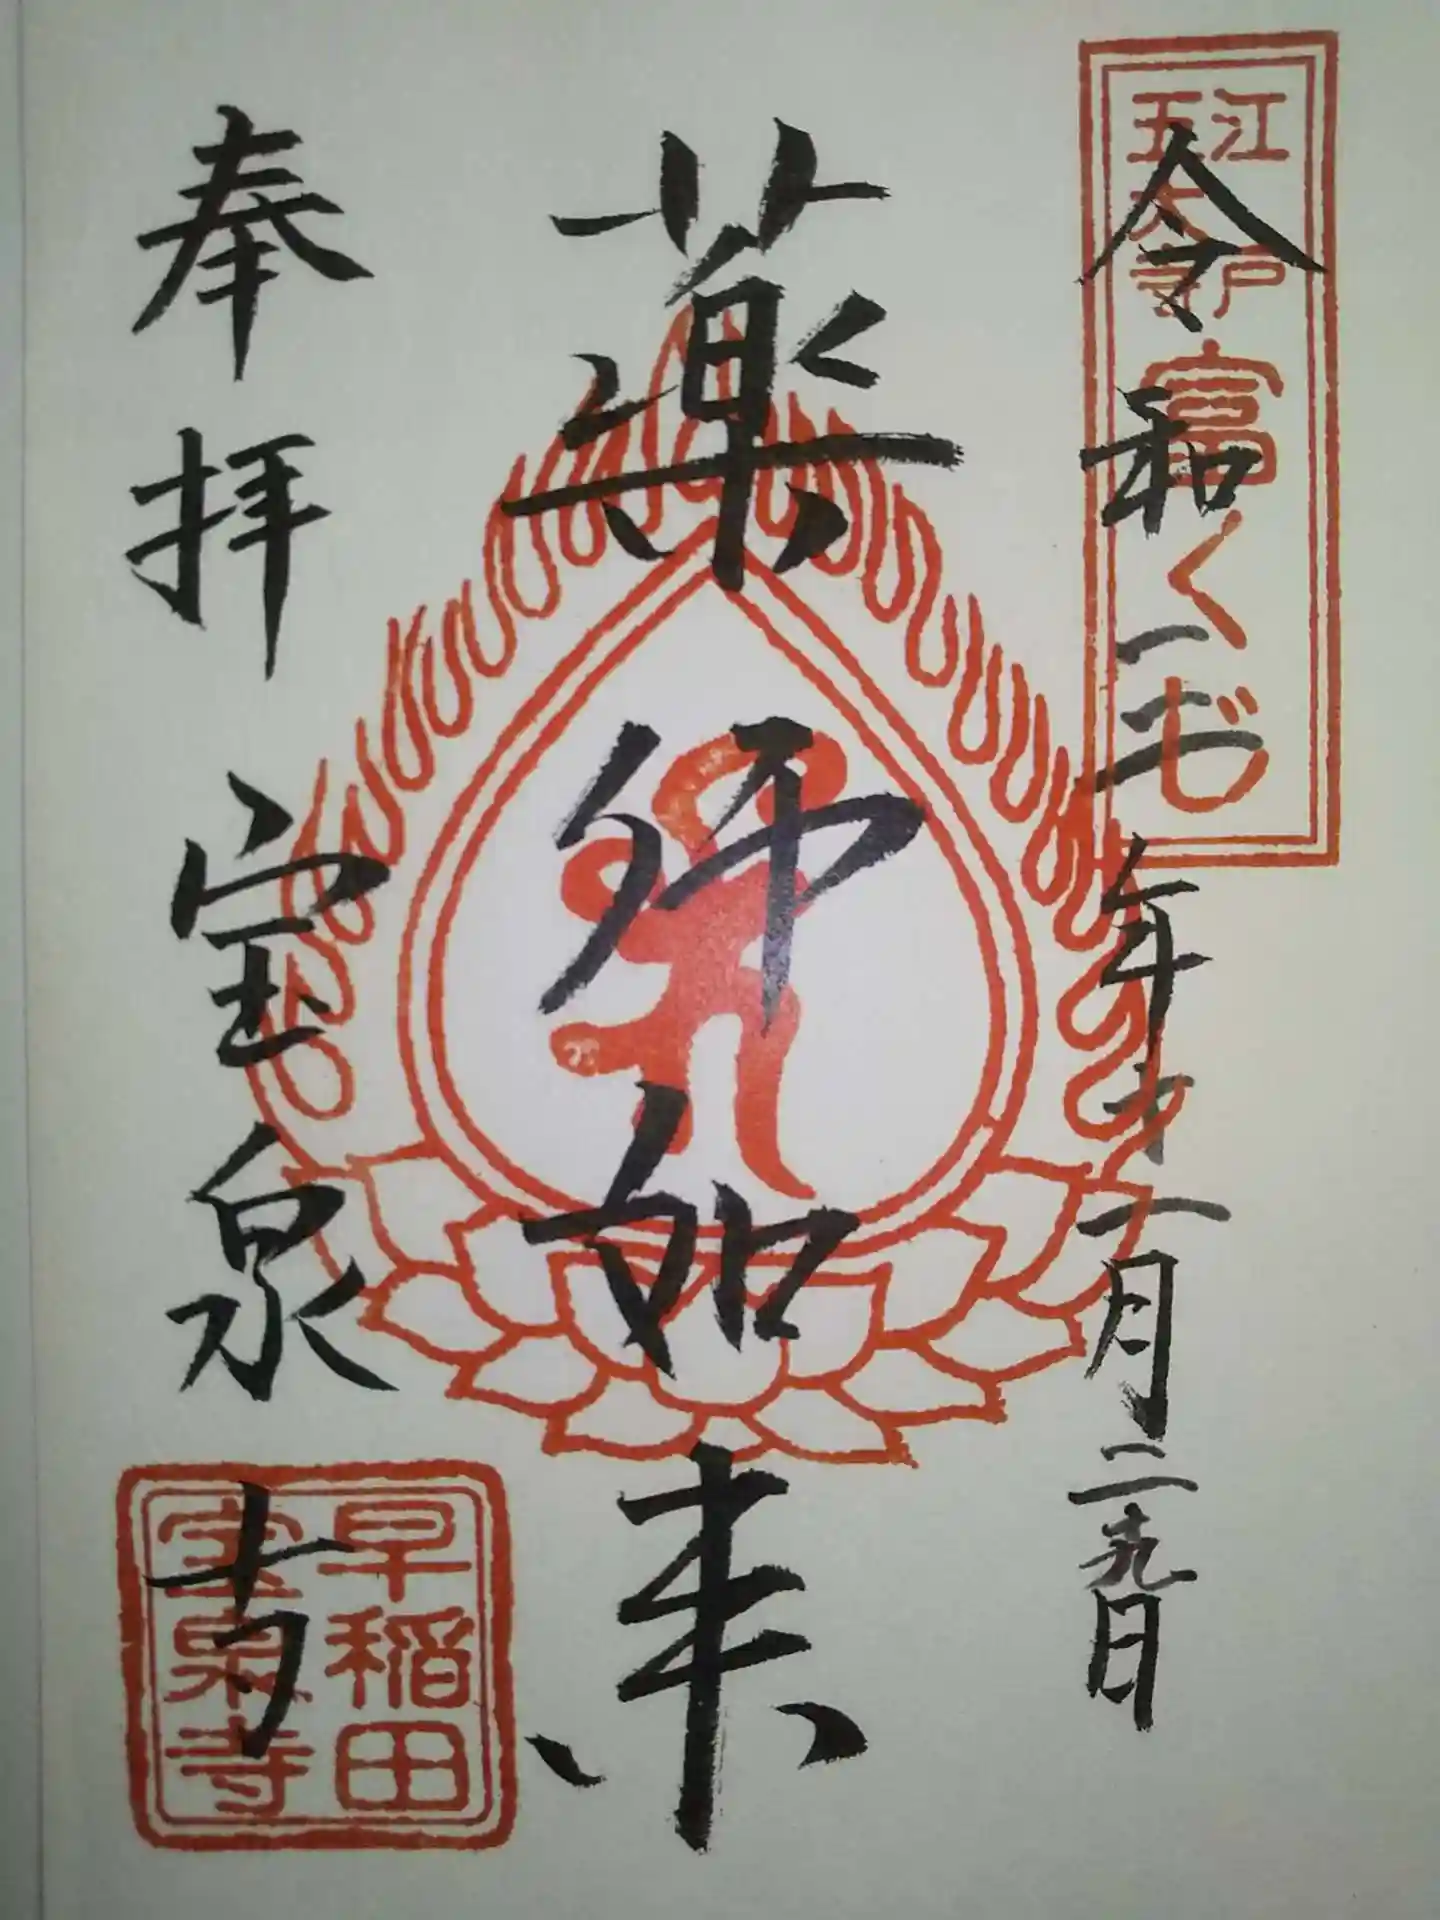 江戸
五大寺
富くじ
令和三年十一月二十九日
薬師如来
奉拝 宝泉寺
早稲田
宝泉寺